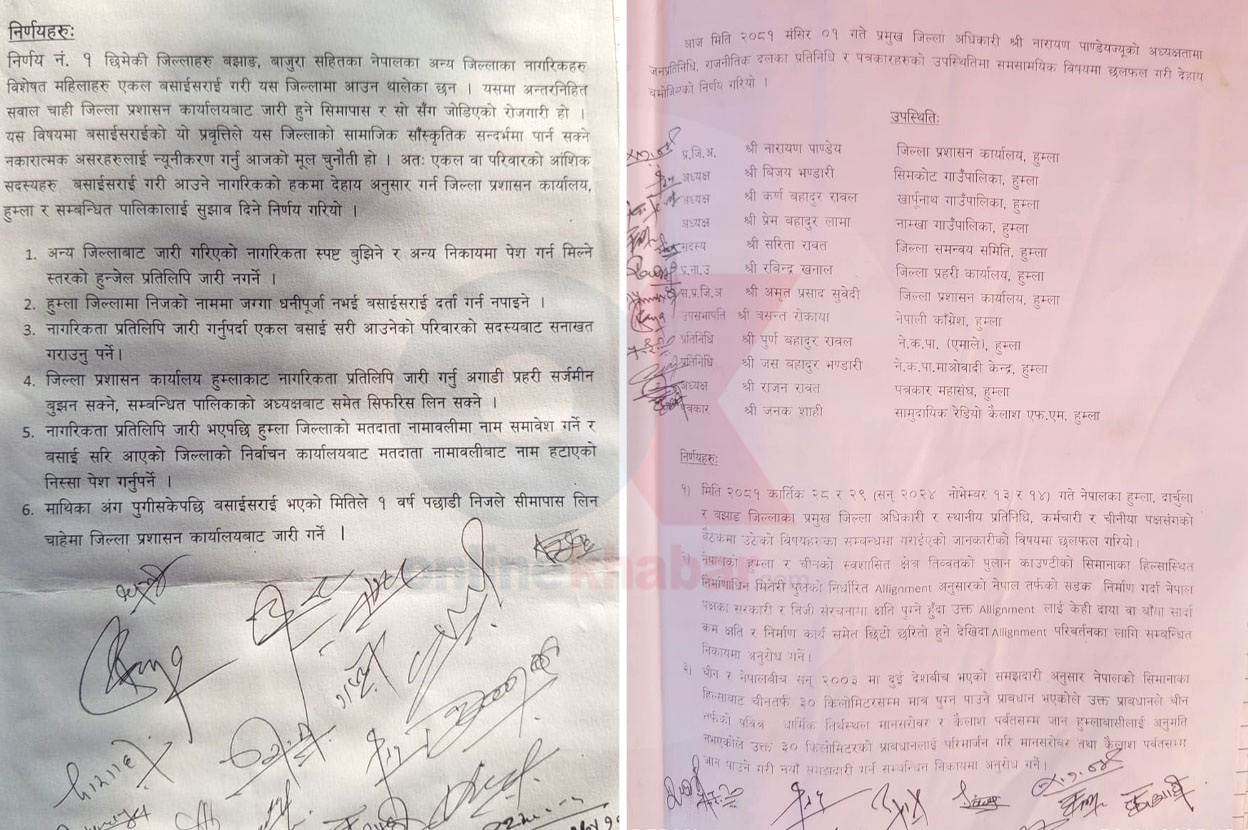 निर्णयहरुः
निर्णय नं. १ छिमेकी जिल्लाहरु बझाङ, बाजुरा सहितका नेपालका अन्य जिल्लाका नागरिकहरु
विशेषत महिलाहरु एकल बसाईसराई गरी यस जिल्लामा आउन थालेका छन । यसमा अन्तरनिहित
सवाल चाही जिल्ला प्रशासन कार्यालयबाट जारी हुने सिमापास र सो सँग जोडिएको रोजगारी हो ।
यस विषयमा बसाईसराईको यो प्रवृत्तिले यस जिल्लाको सामाजिक साँस्कृतिक सन्दर्भमा पार्न सक्ने
नकारात्मक असरहरुलाई न्यूनीकरण गर्नु आजको मूल चुनौती हो । अतः एकल वा परिवारको आंशिक
सदस्यहरु बसाईसराई गरी आउने नागरिकको हकमा देहाय अनुसार गर्न जिल्ला प्रशासन कार्यालय,
हुम्ला र सम्बन्धित पालिकालाई सुझाव दिने निर्णय गरियो ।
1. अन्य जिल्लाबाट जारी गरिएको नागरिकता स्पष्ट बुझिने र अन्य निकायमा पेश गर्न मिल्ने
स्तरको हुन्जेल प्रतिलिपि जारी नगर्ने ।
2. हुम्ला जिल्लामा निजको नाममा जग्गा धनीपूर्जा नभई बसाईसराई दर्ता गर्न नपाइने ।
3. नागरिकता प्रतिलिपि जारी गर्नुपर्दा एकल बसाई सरी आउनेको परिवारको सदस्यबाट सनाखत
गराउनु पर्ने।
4. जिल्ला प्रशासन कार्यालय हुम्लाकाट नागरिकता प्रतिलिपि जारी गर्नु अगाडी प्रहरी सर्जमीन
बुझन सक्ने, सम्बन्धित पालिकाको अध्यक्षबाट समेत सिफरिस लिन सक्ने ।
5. नागरिकता प्रतिलिपि जारी भएपछि हुम्ला जिल्लाको मतदाता नामावलीमा नाम समावेश गर्ने र
बसाई सरि आएको जिल्लाको निर्वाचन कार्यालयबाट मतदाता नामावलीबाट नाम हटाएको
निस्सा पेश गर्नुपर्ने ।
6. माथिका अंग पुगीसकेपछि बसाईसराई भएको मितिले १ वर्ष पछाडी निजले सीमापास लिन
चाहेमा जिल्ला प्रशासन कार्यालयबाट जारी गर्ने ।
आज मिति २०८१ मंसिर ०१ गते प्रमुख जिल्ला अधिकारी श्री नारायण पाण्डेयज्यूको अध्यक्षतामा
जनप्रतिनिधि, राजनीतिक दलका प्रतिनिधि र पत्रकारहरुको उपस्थितिमा समसामयिक विषयमा छलफल गरी देहाय
बमोजिमको निर्णय गरियो ।
उपस्थितिः
प्र.जि.अ. श्री नारायण पाण्डेय जिल्ला प्रशासन कार्यालय, हुम्ला
अध्यक्ष श्री विजय भण्डारी सिमकोट गाउँपालिका, हुम्ला
अध्यक्ष श्री कर्ण बहादुर रावल खार्पूनाथ गाउँपालिका, हुम्ला
अध्यक्ष श्री प्रेम बहादुर लामा नाम्खा गाउँपालिका, हुम्ला
सदस्य श्री सरिता रावत जिल्ला समन्वय समिति, हुम्ला
प्र.ना.उ श्री रबिन्द्र खनाल जिल्ला प्रहरी कार्यालय, हुम्ला
स.प्र.जि.अ श्री अमृत प्रसाद सुवेदी जिल्ला प्रशासन कार्यालय, हुम्ला
उपसभापति श्री बसन्त रोकाया नेपाली काँग्रेश, हुम्ला
प्रतिनिधि श्री पुर्ण बहादुर रावल ने.क.पा. (एमाले), हुम्ला
प्रतिनिधि श्री जस बहादुर भण्डारी ने.क.पा.माओवादी केन्द्र, हुम्ला
अध्यक्ष श्री राजन रावत पत्रकार महासंघ, हुम्ला
पत्रकार श्री जनक शाही सामुदायिक रेडियो कैलाश एफ.एम, हुम्ला
निर्णयहरुः
१) मिति २०८१ कार्तिक २८ र २९ (सन् २०२४ नोभेम्बर १३ र १४) गते नेपालका हुम्ला, दार्चुला
र बझाङ जिल्लाका प्रमुख जिल्ला अधिकारी र स्थानीय प्रतिनिधि, कर्मचारी र चीनीया पक्षसंगको
बैठकमा उठेको विषयहरुका सम्बन्धमा गराईएको जानकारीको विषयमा छलफल गरियो।
नेपालको हुम्ला र चीनको स्वशासित क्षेत्र तिब्बतको पुलान काउण्टीको सिमानाका हिल्सास्थित
निर्माणाधिन मितेरी पुलको निर्धारित Allignment अनुसारको नेपाल तर्फको सडक निर्माण गर्दा नेपाल
पक्षका सरकारी र निजी संरचनामा क्षति पुग्ने हुँदा उक्त Allignment लाई केही दाया वा बाँया सार्दा
कम क्षति र निर्माण कार्य समेत छिटो छरितो हुने देखिदा Allignment परिवर्तनका लागि सम्बन्धित
निकायमा अनुरोध गर्ने।
३) चीन र नेपालबीच सन् २००३ मा दुई देशबीच भएको समझदारी अनुसार नेपालको सिमानाका
हिल्साबाट चीनतर्फ ३० किलोमिटरसम्म मात्र पुग्न पाउने प्रावधान भएकोले उक्त प्रावधानले चीन
तर्फको पवित्र धार्मिक तिर्थस्थल मानसरोवर र कैलाश पर्वतसम्म जान हुम्लाबासीलाई अनुमति
नभएकोले उक्त ३० किलोमिटरको प्रावधानलाई परिमार्जन गरि मानसरोवर तथा कैलाश पर्वतसम्म
जान पाउने गरी नयाँ समझदारी गर्न सम्बन्धित निकायमा अनुरोध गर्ने।
onlinekhabar.com